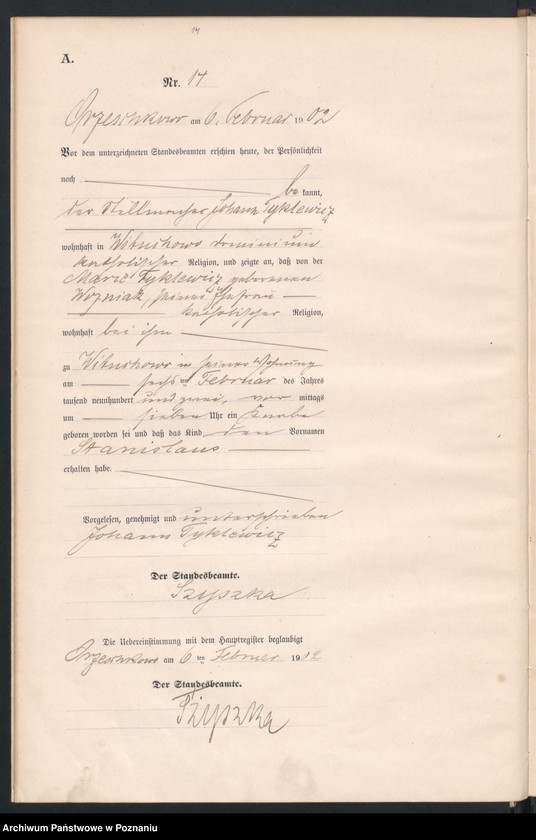 14
A.
Nr. 14
Orzeschkowo am 6. Februar 1902
Vor dem unterzeichneten Standesbeamten erschien heute, der Persönlichkeit
nach be kannt,
der Stellmacher Johann Tyklewicz
wohnhaft in Wituchowo dominium
katholischer Religion, und zeigte an, daß von der
Marie Tyklewicz geborenen
Wozniak, seiner Ehefrau
katholischer Religion,
wohnhaft bei ihm
zu Wituchowo in seiner Wohnung
am sechsten Februar des Jahres
tausend neunhundert und zwei, vor mittags
um sieben Uhr ein Knabe
geboren worden sei und daß das Kind den Vornamen
Stanislaus
erhalten habe.
Vorgelesen, genehmigt und unterschrieben
Johann Tyklewicz
Der Standesbeamte.
Szyszka
Die Uebereinstimmung mit dem Hauptregister beglaubigt
Orzeschkowo am 6 ten Februar 1902
Der Standesbeamte.
Szyszka
Archiwum Państwowe w Poznaniu